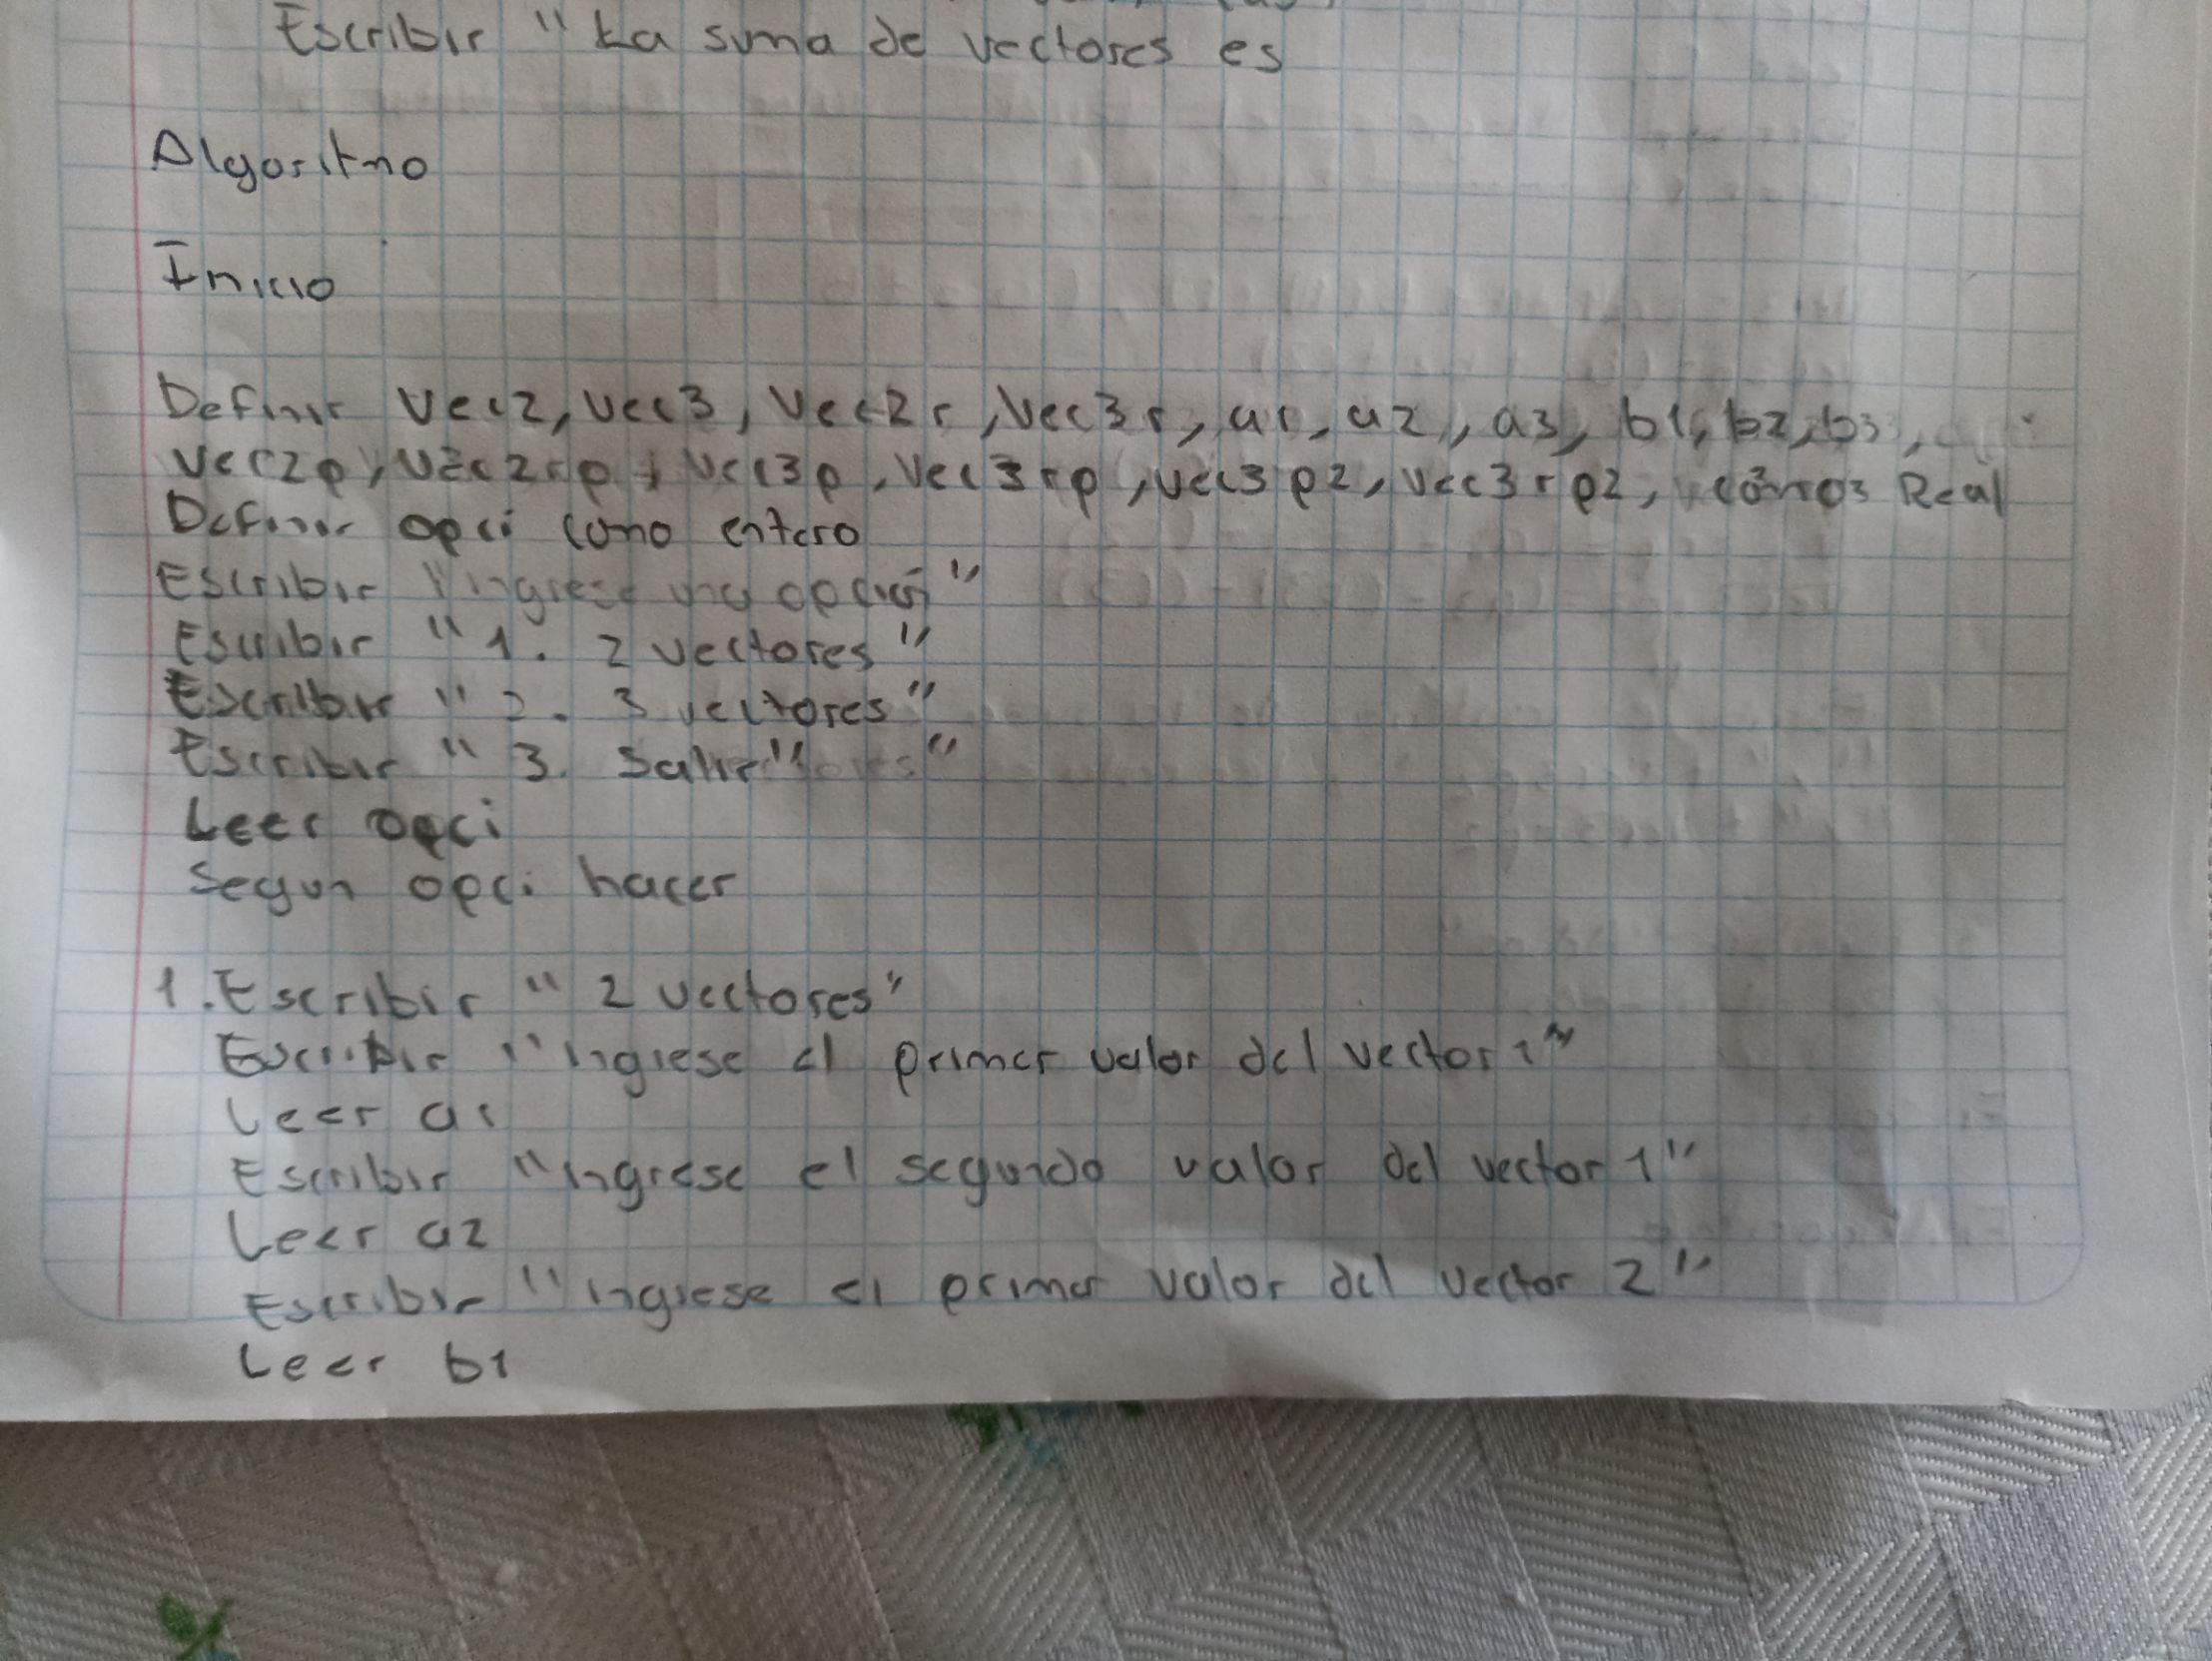 Escribir "La suma de vectores es
Algoritmo
Inicio
Definir Vec2, Vec3, Vec2r, Vec3r, a1, a2, a3, b1, b2, b3,
Vec2p, Vec2rp, Vec3p, Vec3rp, vec3p2, vec3rp2, Real
Definir opci como entero
Escribir "ingrese una opción"
Escribir "1. 2 vectores"
Escribir "2. 3 vectores"
Escribir "3. Salir"
Leer opci
Segun opci hacer
1. Escribir "2 vectores"
Escribir "ingrese el primer valor del vector 1"
Leer a1
Escribir "ingrese el segundo valor del vector 1"
Leer a2
Escribir "ingrese el primer valor del vector 2"
Leer b1